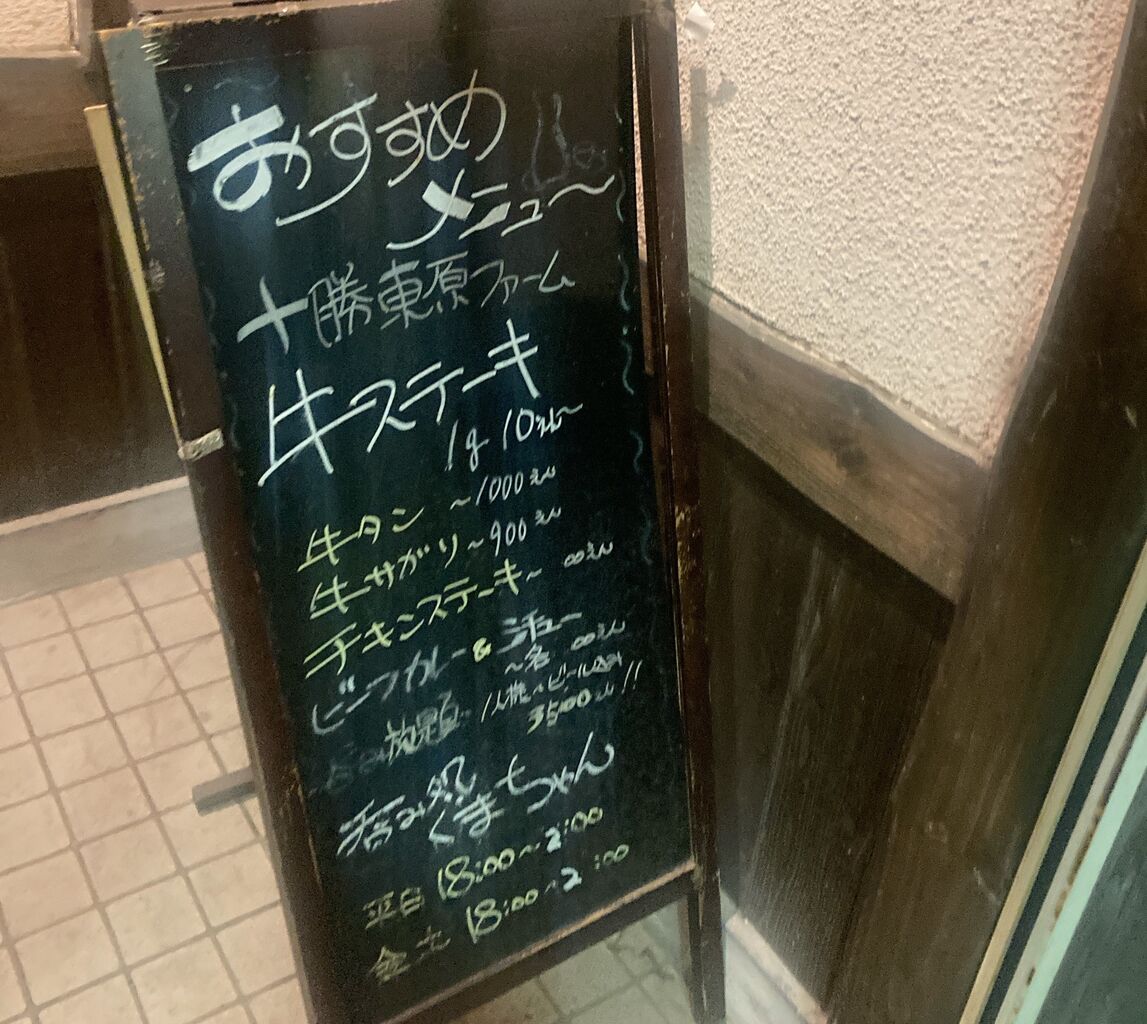 おすすめ
メニュ〜
十勝東原ファーム
牛ステーキ
1g 10えん〜
牛タン 〜1000えん
牛サガリ〜900えん
チキンステーキ〜 ∞えん
ビーフカレー & シチュー
〜各 ∞えん
放題 〜ビール込み
3500えん!!
呑み処
くまちゃん
平日 18:00〜2:00
金土 18:00〜2:00